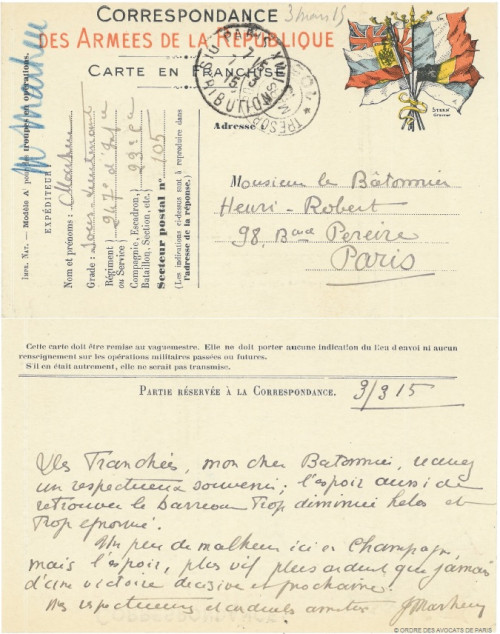 CORRESPONDANCE
3 mars 15
DES ARMÉES DE LA RÉPUBLIQUE
CARTE EN FRANCHISE
PARIS XVII
DISTRIBUTION
TRÉSOR
M Mathieu
Impr. Nat. — Modèle A pour les troupes en opérations.
EXPÉDITEUR :
Nom et prénoms :
Grade : Sous-Lieutenant
Régiment ou Service) 247e d'Infie
Compagnie, Escadron, Bataillon, Section, etc.) 23e Cie
Secteur postal n° 105
(Les indications ci-dessus sont à reproduire dans l'adresse de la réponse.)
Adresse
Monsieur le Bâtonnier
Henri-Robert
98, Bard Pereire
Paris
Cette carte doit être remise au vaguemestre. Elle ne doit porter aucune indication du lieu d'envoi ni aucun
renseignement sur les opérations militaires passées ou futures.
S'il en était autrement, elle ne serait pas transmise.
PARTIE RÉSERVÉE À LA CORRESPONDANCE.
3/3 15
Des Tranchées, mon cher Batonnier, recevez
un respectueux souvenir; l'espoir aussi de
retrouver le barreau trop diminué helas et
trop éprouvé.
Un peu de malheur ici en Champagne,
mais l'espoir, plus vif plus ardent que jamais
d'une victoire décisive et prochaine.
Mes respectueuses et cordiales amitiés
© ORDRE DES AVOCATS DE PARIS